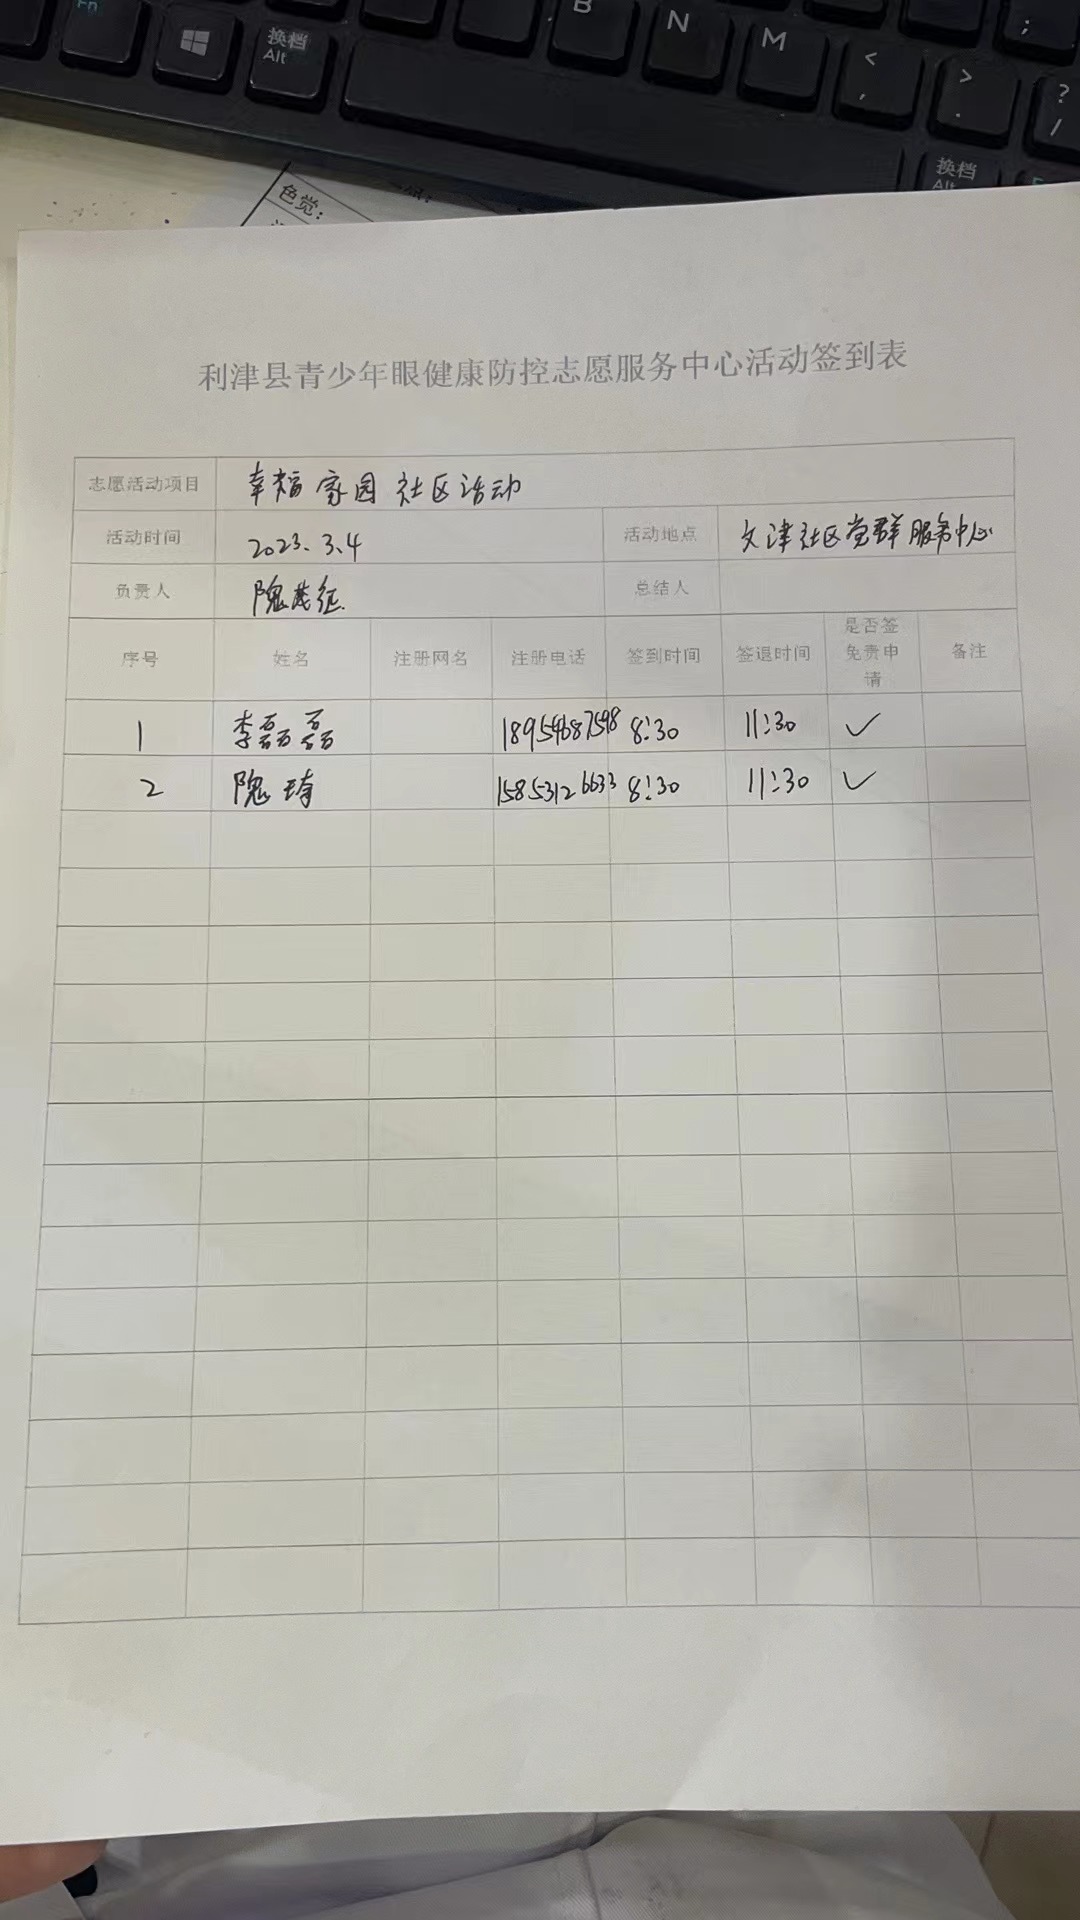 Fn
换档
Alt
B
N
M
<
,
>
.
;
?
/
换档
Alt
色觉:
利津县青少年眼健康防控志愿服务中心活动签到表
志愿活动项目 幸福家园社区活动
活动时间 2023.3.4 活动地点 文津社区党群服务中心
负责人 隗茂征 总结人
序号 姓名 注册网名 注册电话 签到时间 签退时间 是否签免责申请 备注
1 李磊磊 18954687598 8:30 11:30 ✓
2 隗琦 15853126633 8:30 11:30 ✓